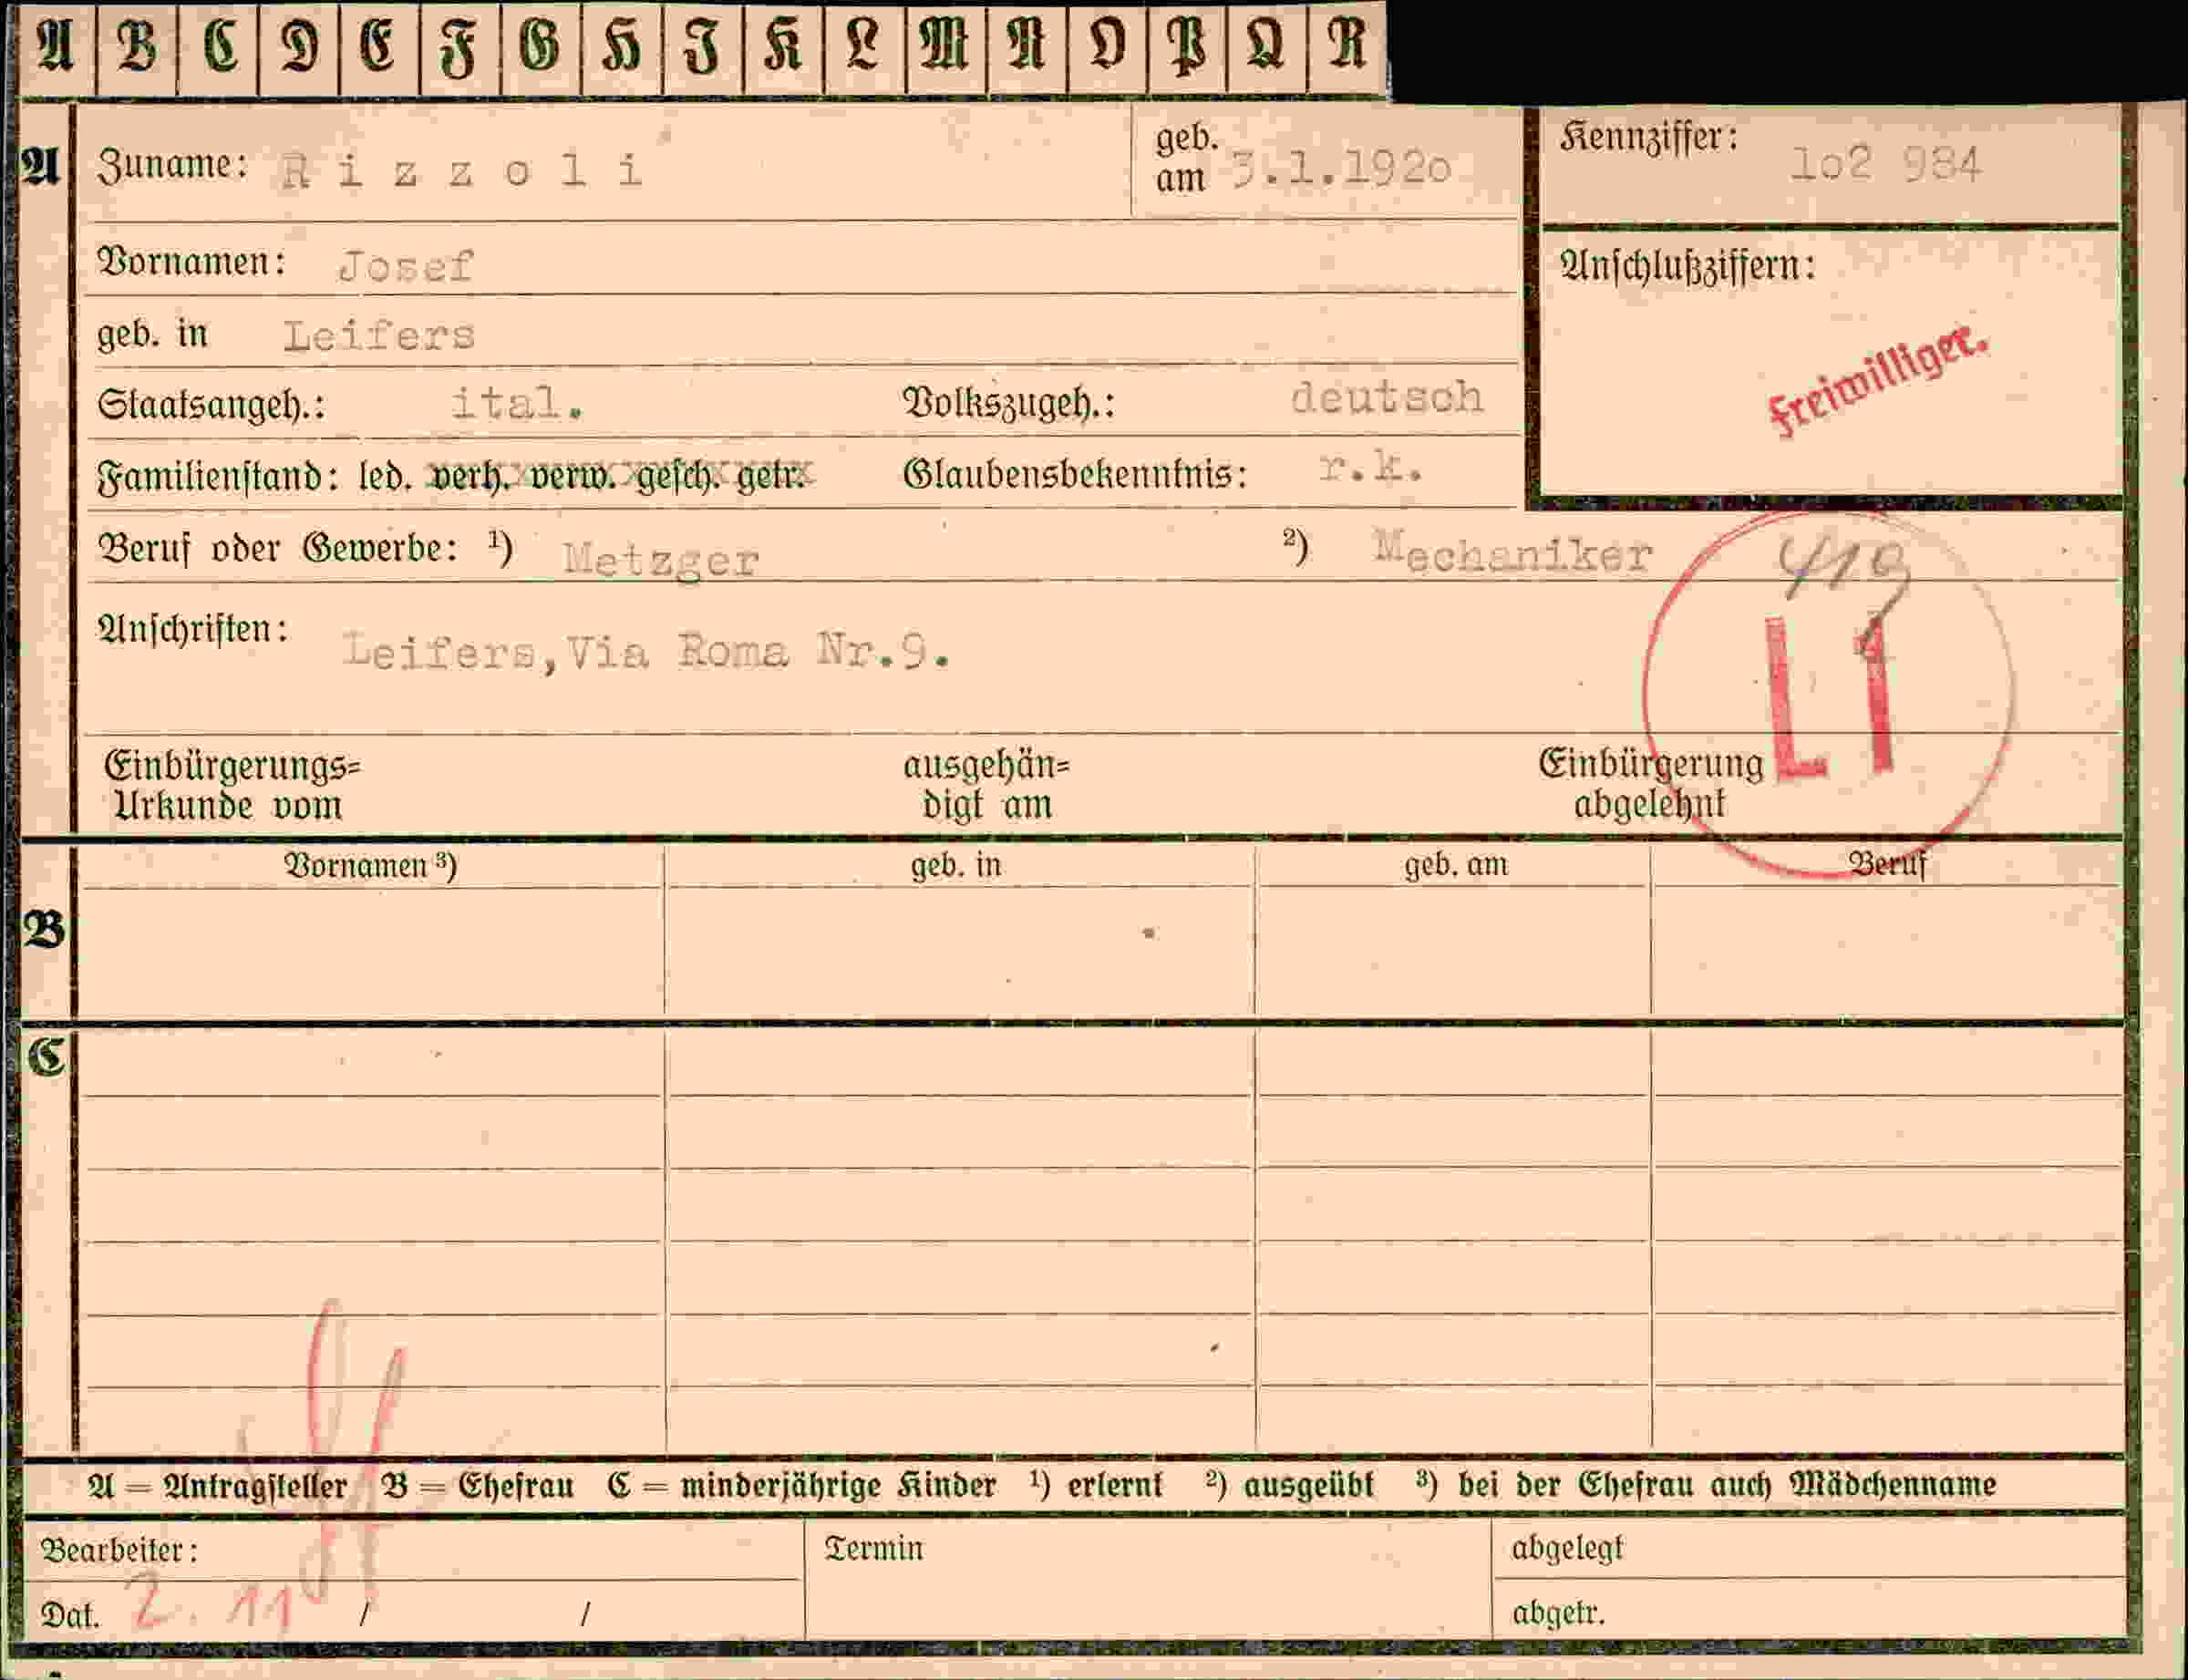 A B C D E F G H I K L M N O P Q R
A Zuname: Rizzoli geb. am 3.1.192o Kennziffer: lo2 984
Vornamen: Josef Anschlußziffern:
geb. in Leifers Freiwilliger.
Staatsangeh.: ital. Volkszugeh.: deutsch
Familienstand: led. verh. verw. gesch. getr. Glaubensbekenntnis: r.k.
Beruf oder Gewerbe: ¹) Metzger ²) Mechaniker
Anschriften: Leifers,Via Roma Nr.9. L1
Einbürgerungs= ausgehän= Einbürgerung
Urkunde vom digt am abgelehnt
Vornamen ³) geb. in geb. am Beruf
B
C
A = Antragsteller B = Ehefrau C = minderjährige Kinder ¹) erlernt ²) ausgeübt ³) bei der Ehefrau auch Mädchenname
Bearbeiter: Termin abgelegt
Dat. 2. 11 / / abgetr.